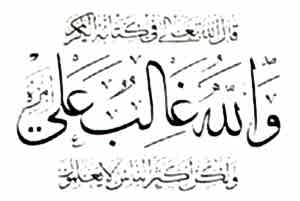 قال الله تعالى في كتابه الكريم
وَاللَّهُ غَالِبٌ عَلَىٰ أَمْرِهِ
ولكن أكثر الناس لا يعلمون